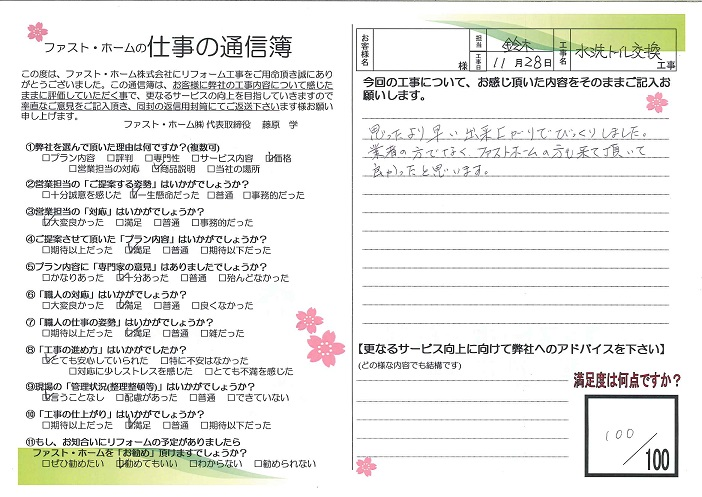 ファスト・ホームの仕事の通信簿
この度は、ファスト・ホーム株式会社にリフォーム工事をご用命頂き誠にあり
がとうございました。この通信簿は、お客様に弊社の工事内容について感じた
ままに評価していただく事で、更なるサービスの向上を目指していきますので
率直なご意見をご記入頂き、同封の返信用封筒にてご返送下さいます様お願い
申し上げます。
ファスト・ホーム㈱ 代表取締役 藤原 学
①弊社を選んで頂いた理由は何ですか?(複数可)
□プラン内容 □評判 □専門性 □サービス内容 ☑価格
□営業担当の対応 ☑商品説明 □当社の場所
②営業担当の「ご提案する姿勢」はいかがでしょうか?
□十分誠意を感じた ☑一生懸命だった □普通 □事務的だった
③営業担当の「対応」はいかがでしょうか?
☑大変良かった □満足 □普通 □事務的だった
④ご提案させて頂いた「プラン内容」はいかがでしょうか?
□期待以上だった ☑満足 □普通 □期待以下だった
⑤プラン内容に「専門家の意見」はありましたでしょうか?
□かなりあった ☑十分あった □普通 □殆んどなかった
⑥「職人の対応」はいかがでしょうか?
□大変良かった ☑満足 □普通 □良くなかった
⑦「職人の仕事の姿勢」はいかがでしょうか?
□期待以上だった ☑満足 □普通 □雑だった
⑧「工事の進め方」はいかがでしたか?
☑とても安心していられた □特に不安はなかった
□対応に少しストレスを感じた □とても不満を感じた
⑨現場の「管理状況(整理整頓等)」はいかがでしょうか?
☑言うことなし □配慮があった □普通 □できていない
⑩「工事の仕上がり」はいかがでしょうか?
□期待以上だった ☑満足 □普通 □期待以下だった
⑪もし、お知合いにリフォームの予定がありましたら
ファスト・ホームを「お勧め」頂けますでしょうか?
□ぜひ勧めたい ☑勧めてもいい □わからない □勧められない
お客様名 様 担当 鈴木 工事日 11月28日 工事名 水洗トイレ交換 工事
今回の工事について、お感じ頂いた内容をそのままご記入お
願いします。
思ったより早い出来上がりでびっくりしました。
業者の方でなく、ファストホームの方も来て頂いて
良かったと思います。
【更なるサービス向上に向けて弊社へのアドバイスを下さい】
(どの様な内容でも結構です)
満足度は何点ですか?
100/100